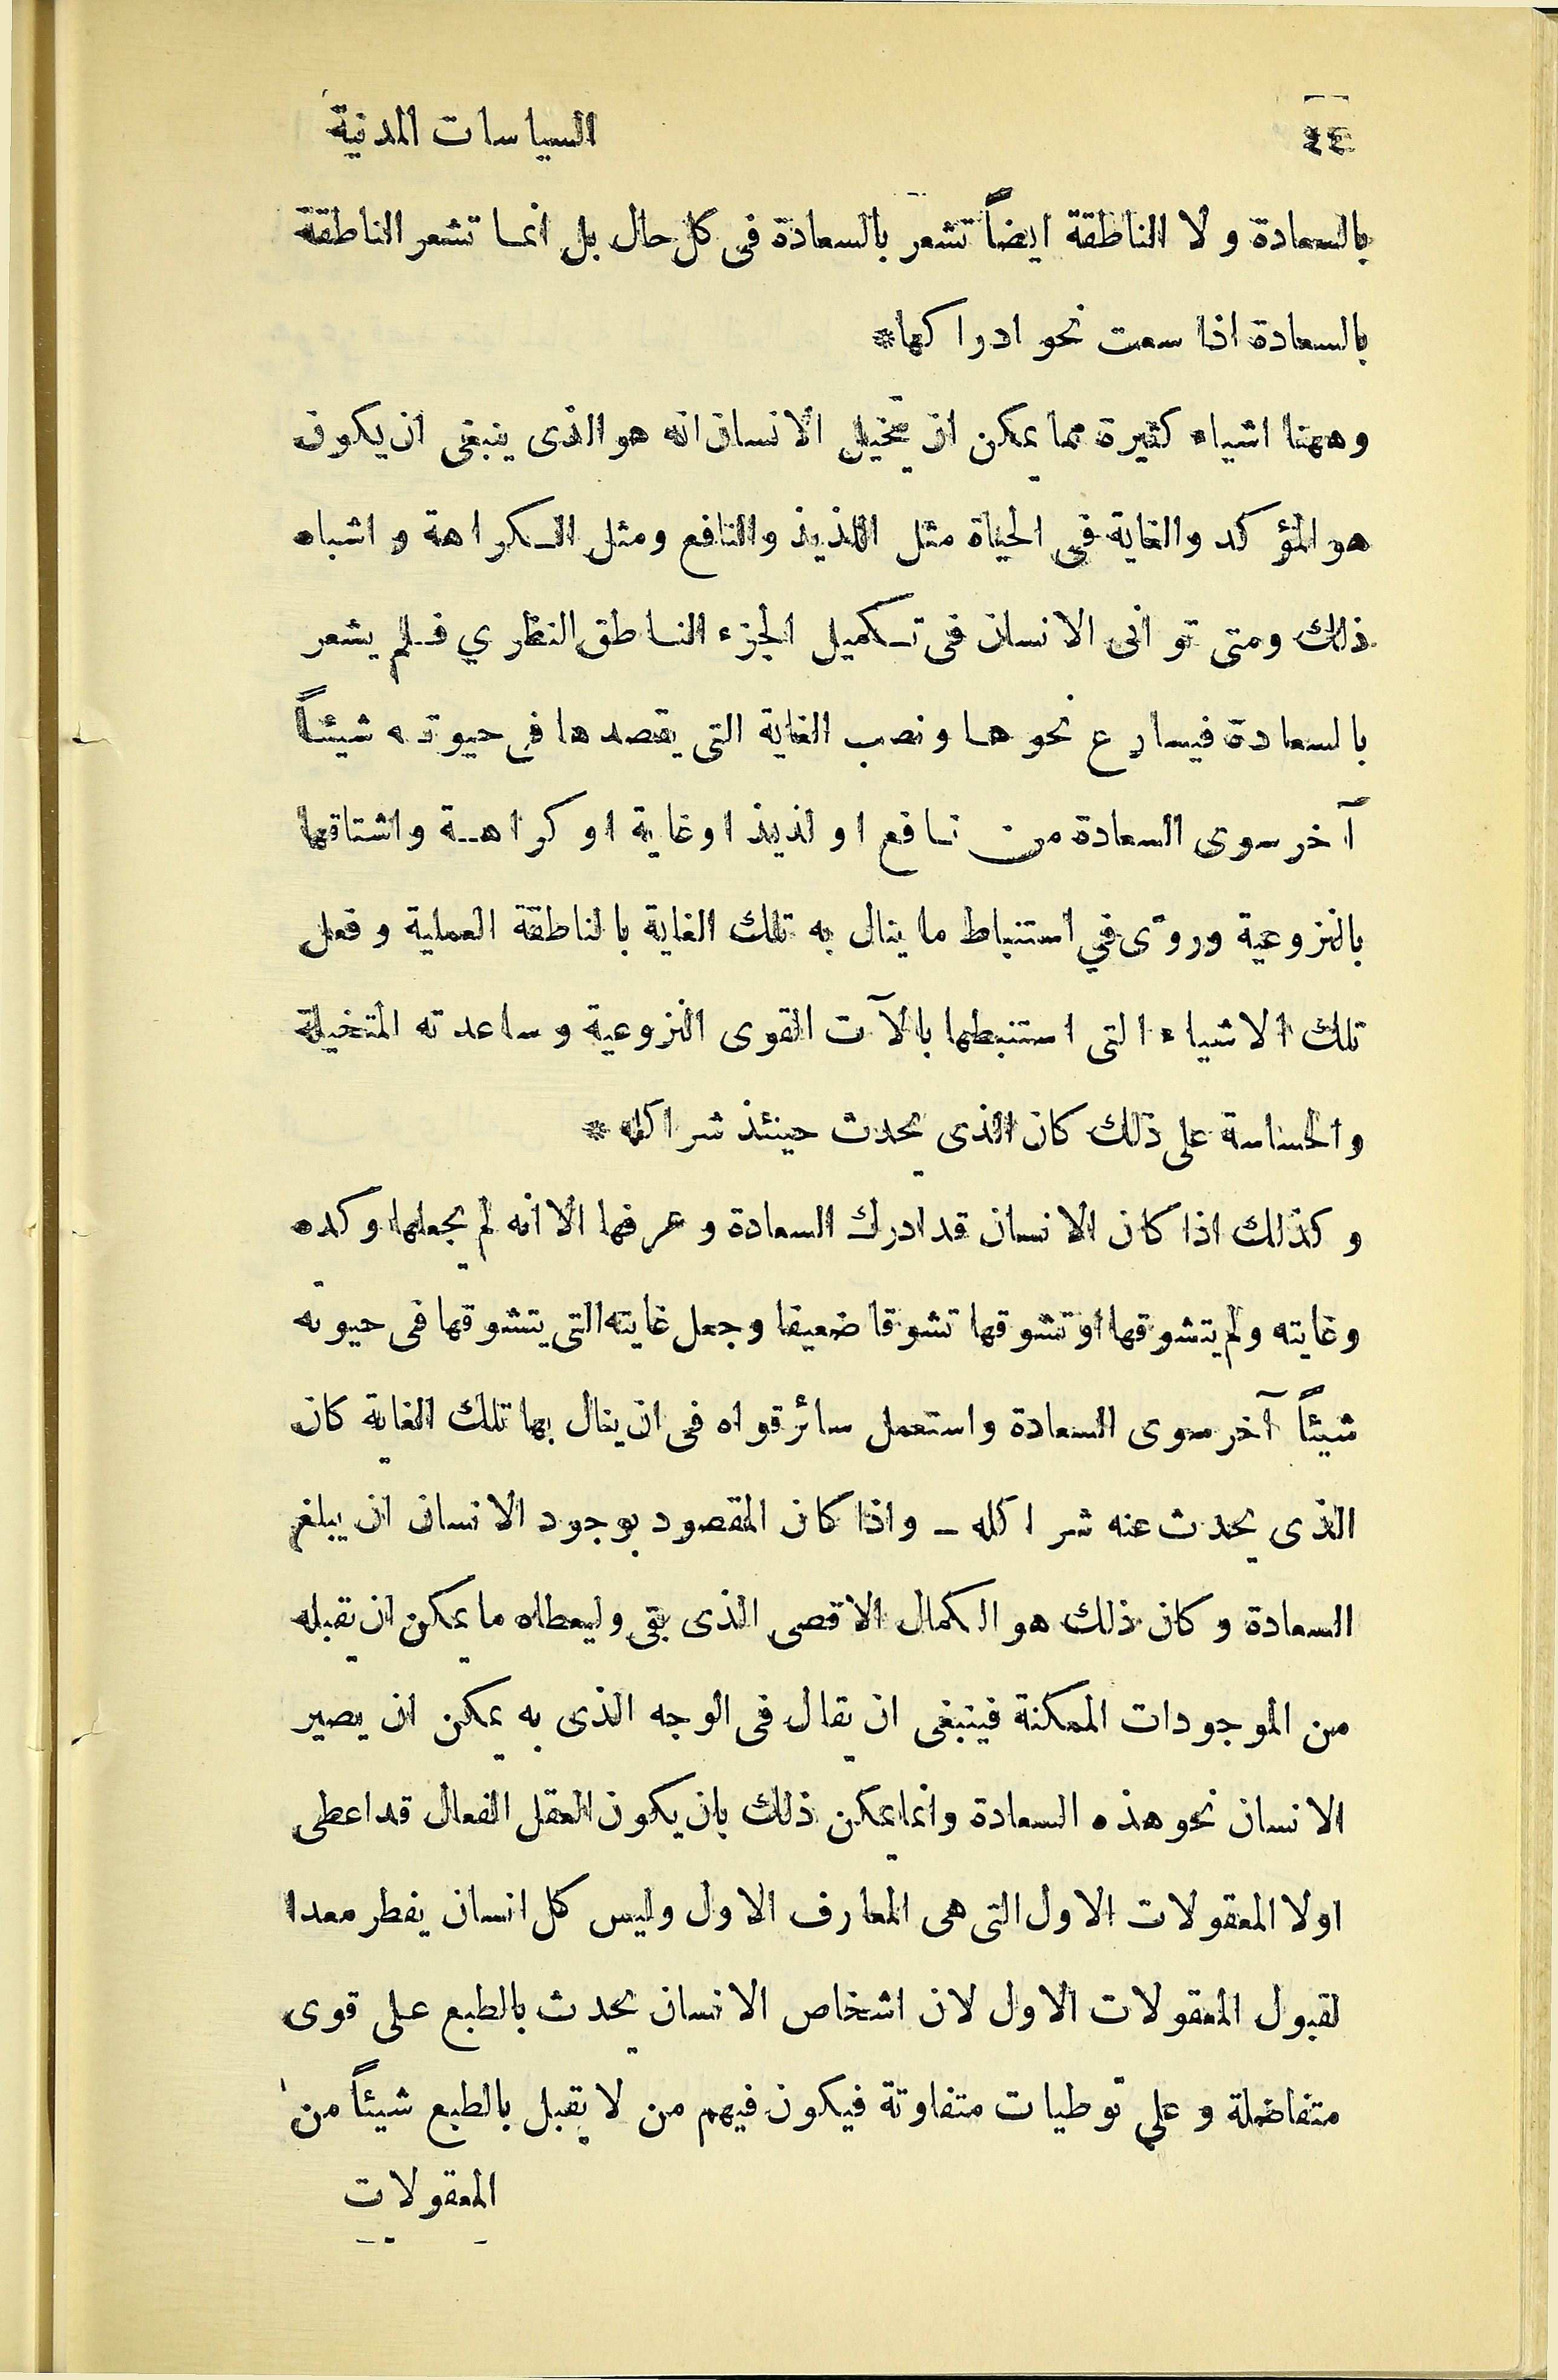 ٤٤ السياسات المدنية
بالسعادة ولا الناطقة ايضاً تشعر بالسعادة فى كل حال بل انما تشعر الناطقة
بالسعادة اذا سعت نحو ادراكها*
وههنا اشياء كثيرة مما يمكن ان يتخيل الانسان انه هو الذى ينبغى ان يكون
هو المؤكد والغاية فى الحياة مثل اللذيذ والنافع ومثل الكراهة واشباه
ذلك ومتى توانى الانسان فى تكميل الجزء الناطق النظري فلم يشعر
بالسعادة فيسارع نحوها ونصب الغاية التى يقصدها فى حيوته شيئاً
آخر سوى السعادة من نافع او لذيذ او غاية او كراهة واشتاقها
بالنزوعية وروّى في استنباط ما ينال به تلك الغاية بالناطقة العملية وفعل
تلك الاشياء التى استنبطها بالآت القوى النزوعية وساعدته المتخيلة
والحساسة على ذلك كان الذى يحدث حينئذ شرا كله *
وكذلك اذا كان الانسان قد ادرك السعادة وعرفها الا انه لم يجعلها وكده
وغايته ولم يتشوقها او تشوقها تشوقا ضعيفا وجعل غايته التى يتشوقها فى حيوته
شيئاً آخر سوى السعادة واستعمل سائر قواه فى ان ينال بها تلك الغاية كان
الذى يحدث عنه شرا كله ـ واذا كان المقصود بوجود الانسان ان يبلغ
السعادة وكان ذلك هو الكمال الاقصى الذى بقى وليعطاه ما يمكن ان تقبله
من الموجودات الممكنة فينبغى ان يقال فى الوجه الذى به يمكن ان يصير
الانسان نحو هذه السعادة وانما يمكن ذلك بان يكون العقل الفعال قد اعطى
اولا المعقولات الاول التى هى المعارف الاول وليس كل انسان يفطر معدا
لقبول المعقولات الاول لان اشخاص الانسان يحدث بالطبع على قوى
متفاضلة وعلى توطيات متفاوتة فيكون فيهم من لا يقبل بالطبع شيئاً من
المعقولات